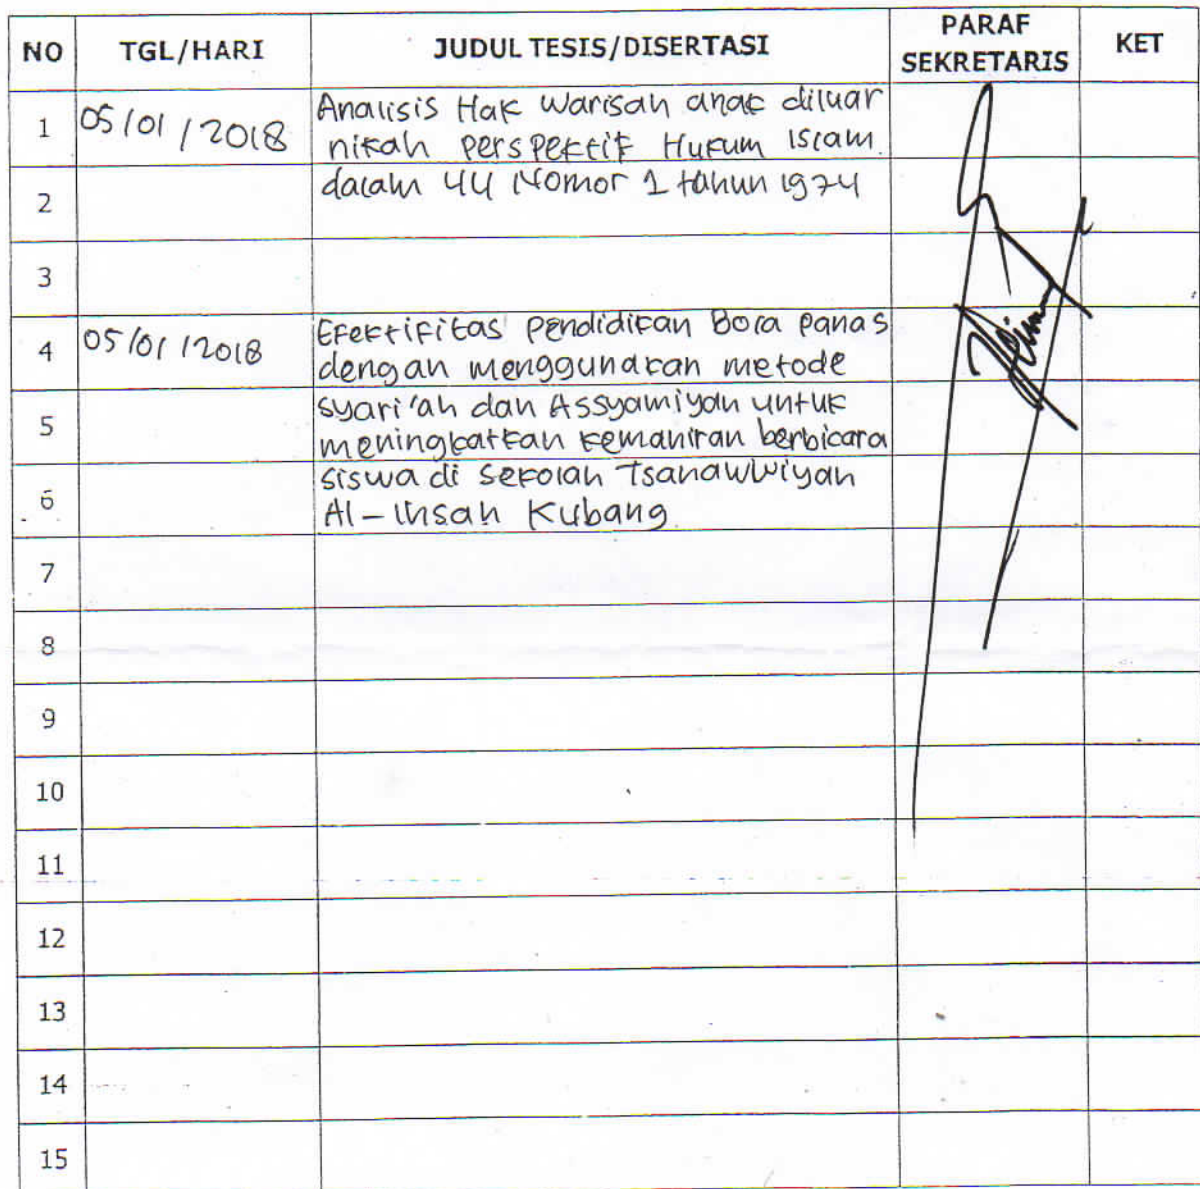 NO TGL/HARI JUDUL TESIS/DISERTASI PARAF SEKRETARIS KET
1 05/01/2018 Analisis Hak Warisan anak diluar
nikah perspektif Hukum Islam
2 dalam UU Nomor 1 tahun 1974
3
4 05/01/2018 Efektifitas pendidikan Bola panas
dengan menggunakan metode
5 syari'ah dan Assyamiyah untuk
meningkatkan kemahiran berbicara
6 siswa di sekolah Tsanawwiyah
Al-Ihsan Kubang
7
8
9
10
11
12
13
14
15